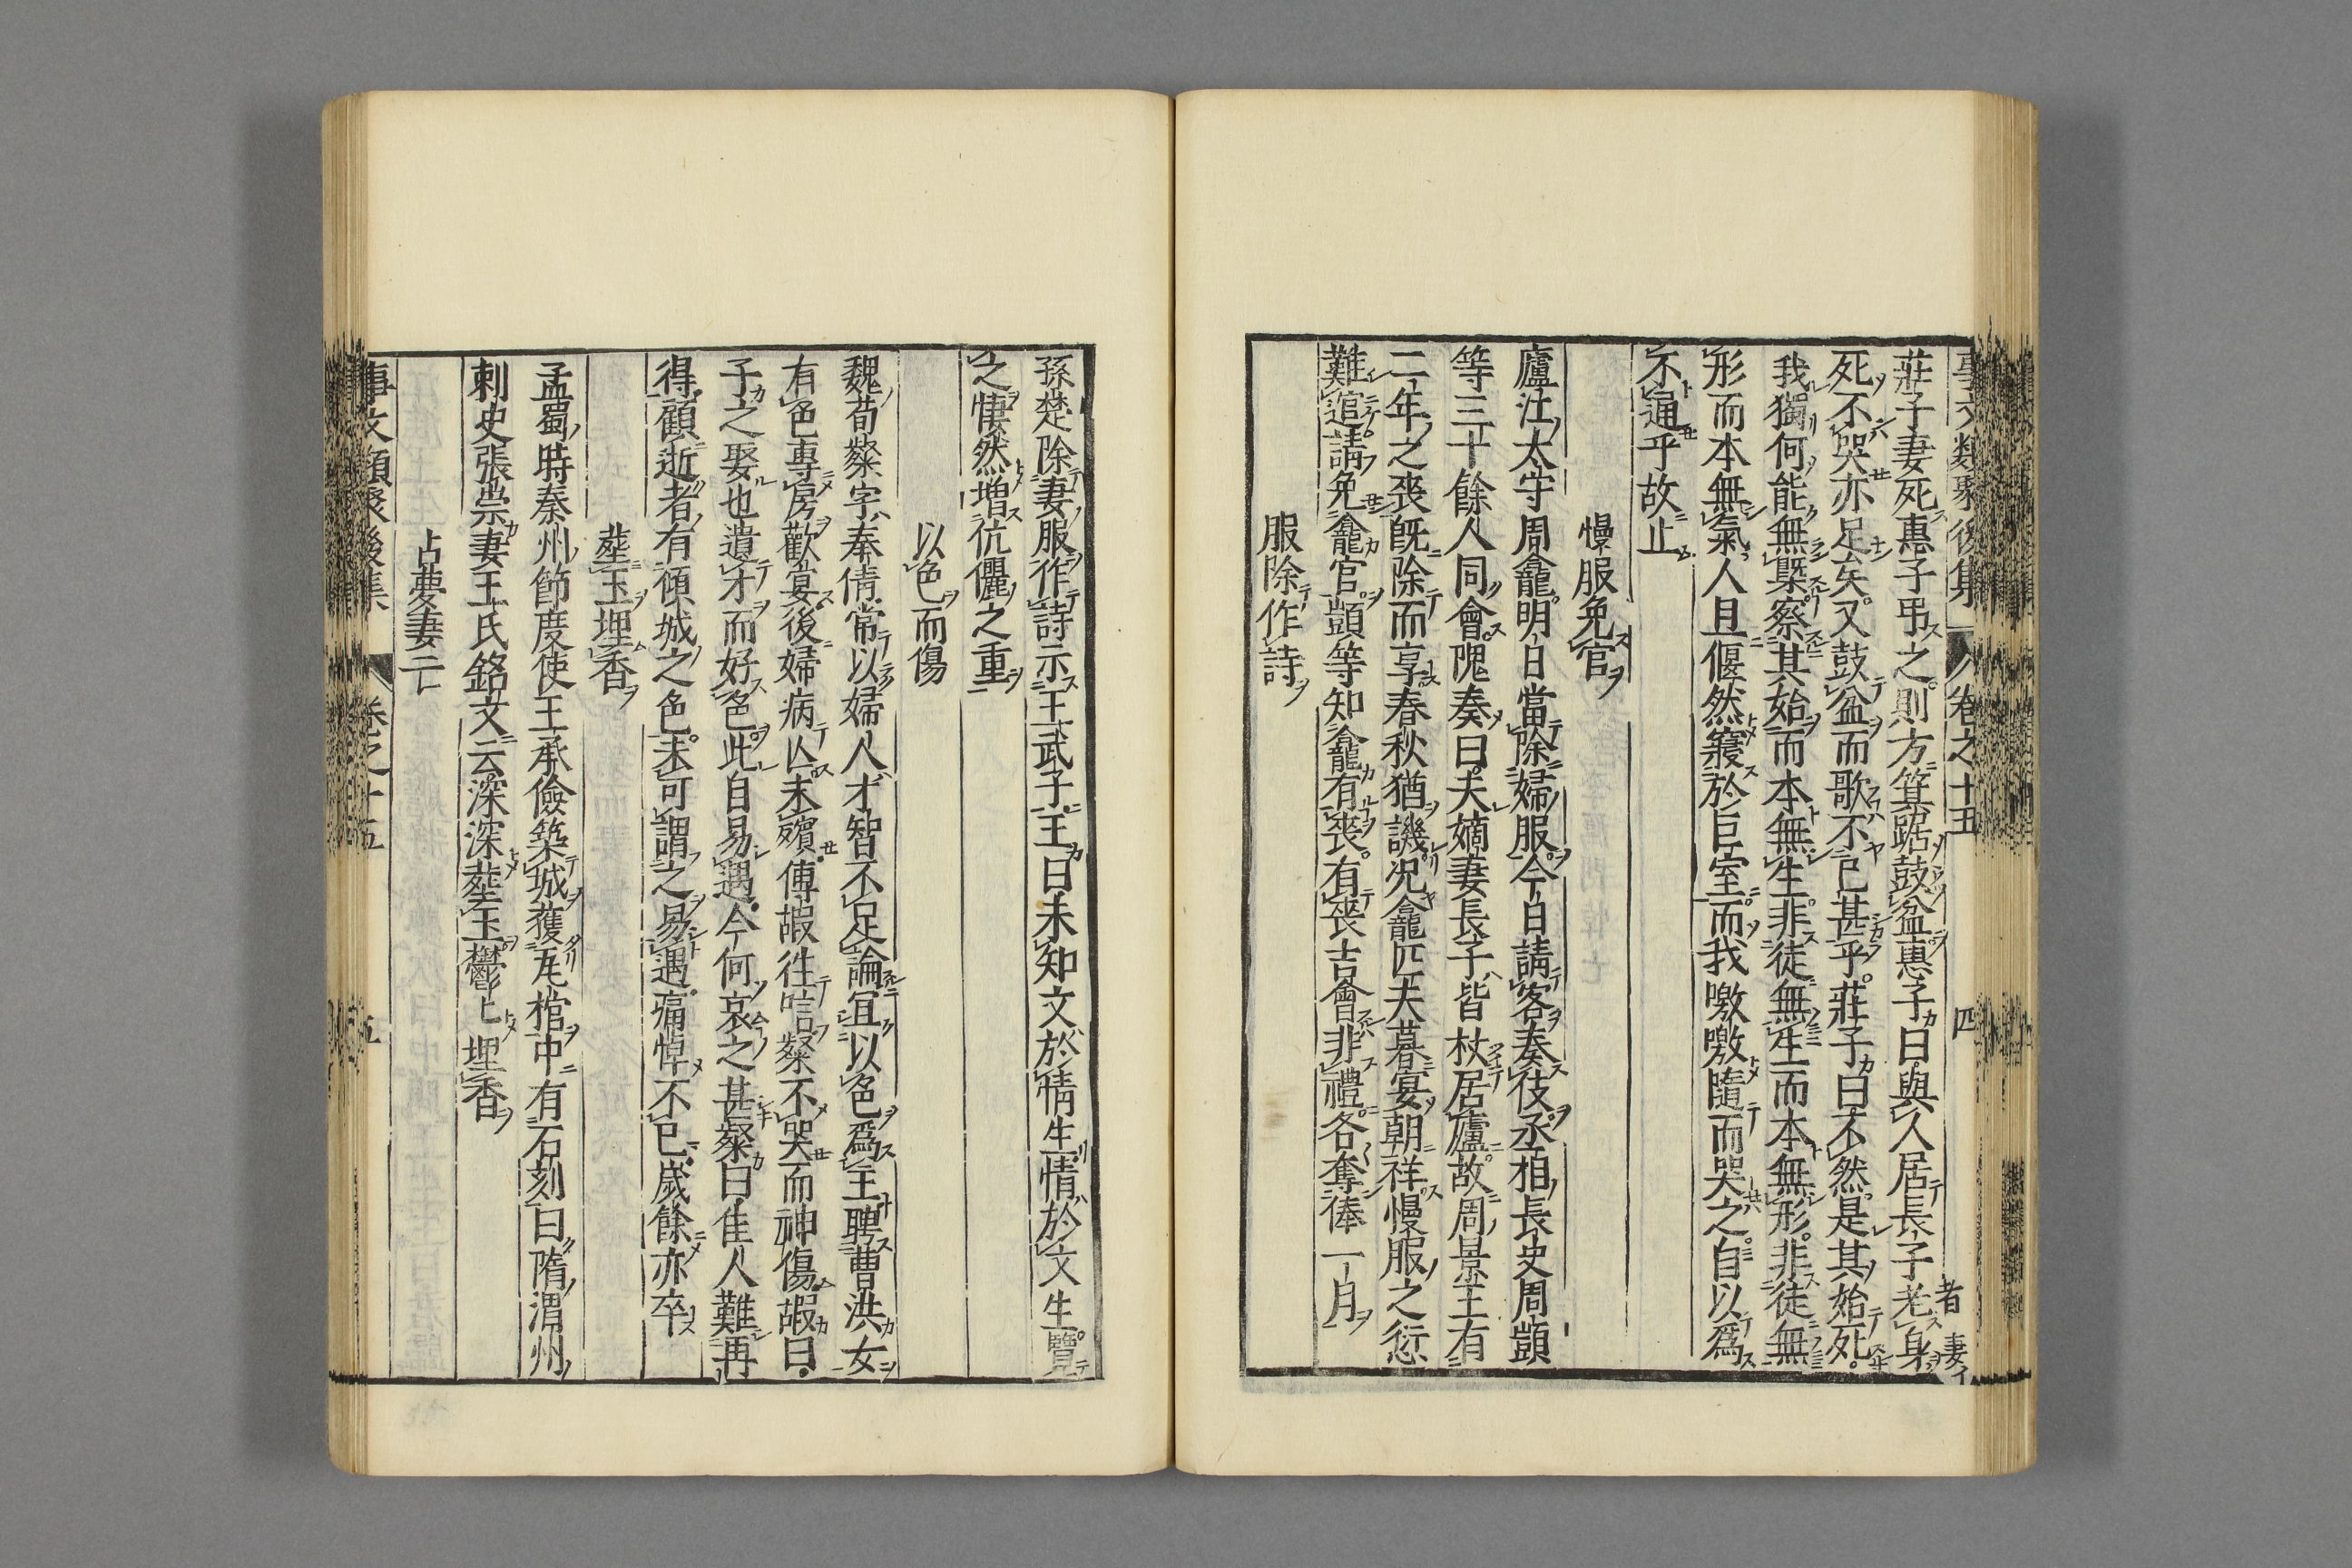 事文類聚後集 卷之十五 四
者 妻イ
莊子妻死惠子弔之則方箕踞鼓盆惠子曰與人居長子老身
死不哭亦足矣又鼓盆而歌不已甚乎莊子曰不然是其始死
我獨何能無槩察其始而本無生非徒無生而本無形非徒無
形而本無氣人且偃然寢於巨室而我噭噭隨而哭之自以爲
不通乎故止
慢服免官
廬江太守周龕明日當除婦服今日請客奏伎丞相長史周顗
等三十餘人同會隗奏曰夫嫡妻長子皆杖居廬故周景王有
二年之喪旣除而享春秋猶譏况龕匹夫暮宴朝祥慢服之愆
難逭請免龕官顗等知龕有喪有喪吉會非禮各奪俸一月
服除作詩
孫楚除妻服作詩示王武子王曰未知文於情生情於文生覽
之悽然增伉儷之重
以色而傷
魏荀粲字奉倩常以婦人才智不足論宜以色爲主聘曹洪女
有色專房歡宴後婦病亾未殯傅嘏徃唁粲不哭而神傷嘏曰
子之娶也遺才而好色此自易遇今何哀之甚粲曰佳人難再
得顧逝者有傾城之色未可謂之易遇痛悼不已歲餘亦卒
塟玉埋香
孟蜀時秦州節度使王承儉築城獲瓦棺中有石刻曰隋渭州
刺史張崇妻王氏銘文云深深塟玉鬱匕埋香
占夢妻亡
事文類聚後集 卷之十五 五